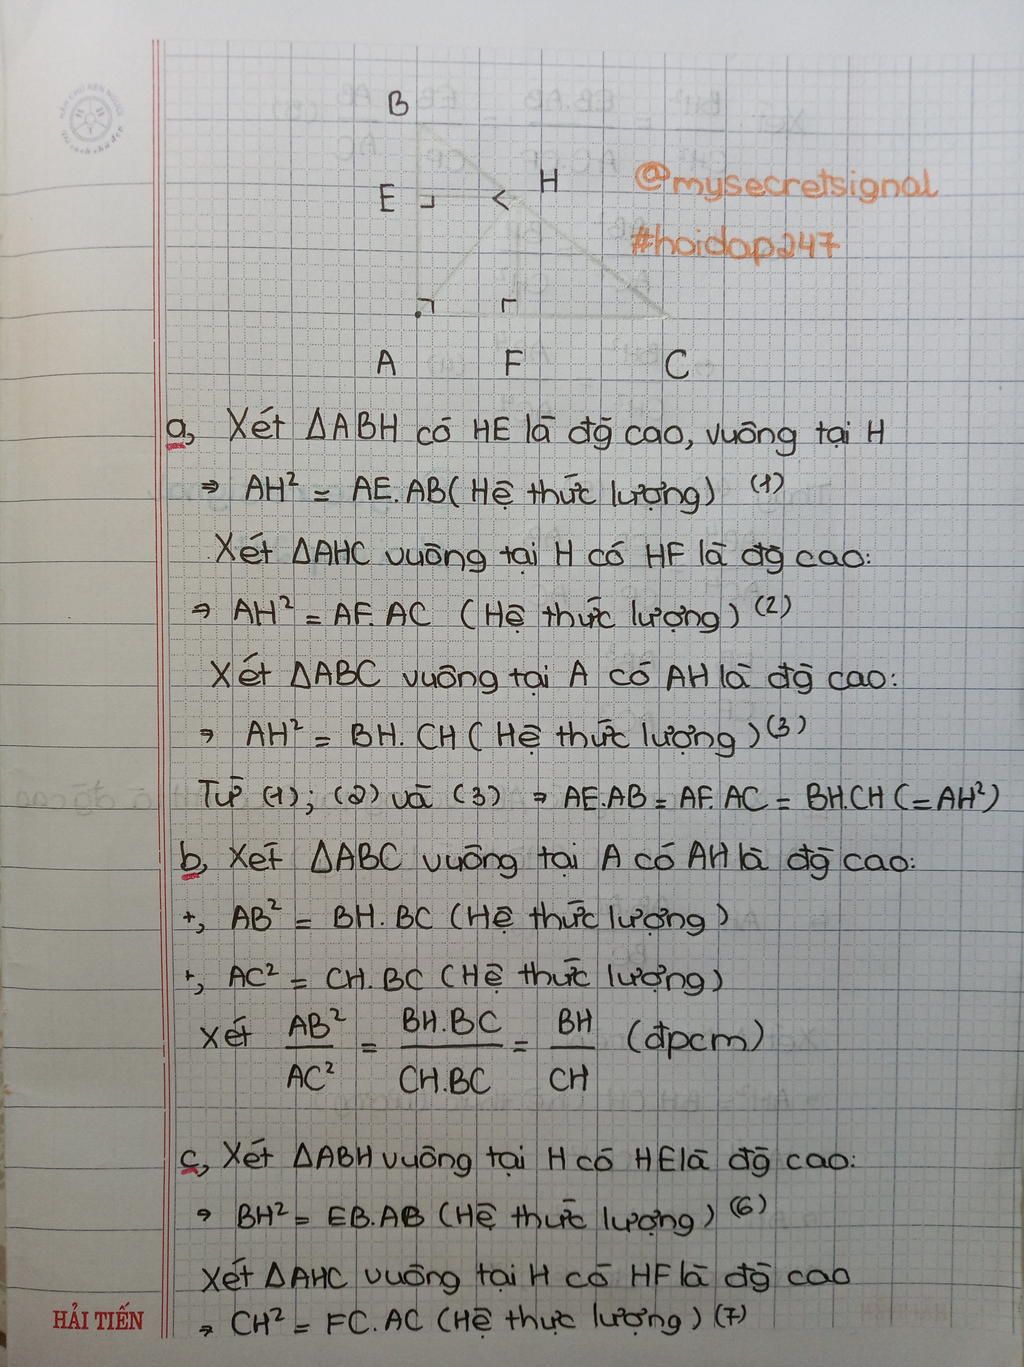 B
E
H
@mysecretsignal
#hoidap247
A F C
a, Xét ΔABH có HE là đg cao, vuông tại H
⇒ AH² = AE.AB (Hệ thức lượng) (1)
Xét ΔAHC vuông tại H có HF là đg cao:
⇒ AH² = AF.AC (Hệ thức lượng) (2)
Xét ΔABC vuông tại A có AH là đg cao:
⇒ AH² = BH.CH (Hệ thức lượng) (3)
Từ (1); (2) và (3) ⇒ AE.AB = AF.AC = BH.CH (=AH²)
b, Xét ΔABC vuông tại A có AH là đg cao:
+, AB² = BH.BC (Hệ thức lượng)
+, AC² = CH.BC (Hệ thức lượng)
Xét AB²/AC² = BH.BC/CH.BC = BH/CH (đpcm)
c, Xét ΔABH vuông tại H có HE là đg cao:
⇒ BH² = EB.AB (Hệ thức lượng) (6)
Xét ΔAHC vuông tại H có HF là đg cao
⇒ CH² = FC.AC (Hệ thức lượng) (7)
HẢI TIẾN